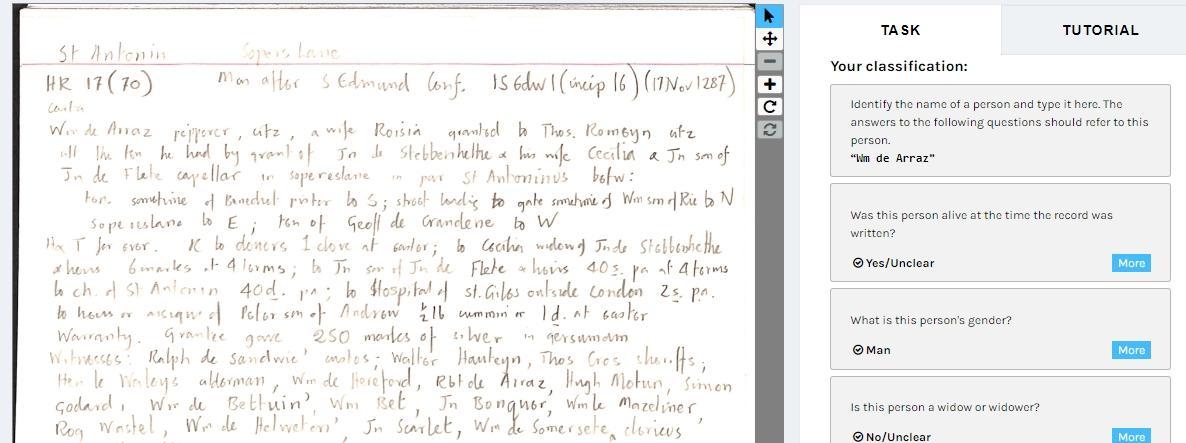 St Antonin Sopers Lane
HR 17 (70) Mon after S Edmund Conf. 15 Edw I (incip 16) (17 Nov 1287)
Carta
Wm de Arraz pepperer, citz, & wife Roisia granted to Thos. Romeyn citz
all the ten he had by grant of Jn de Stebbenhethe & his wife Cecilia & Jn son of
Jn de Flete capellar in sopereslane in par St Antoninus betw:
ten. sometime of Benedict pistor to S; street leadig to gate sometime of Wm son of Ric to N
Sopereslane to E; ten of Geoff de Crandene to W
Hx T for ever. R to donors 1 clove at easter; to Cecilia widow of Jn de Stebbenhethe
& heirs 6 marks at 4 terms; to Jn son of Jn de Flete & heirs 40s. pa at 4 terms
to ch. of St Antonin 40d. pa; to Hospital of St. Giles outside London 2s. pa.
to heirs or assigns of Peter son of Andrew ½ lb cummin or 1d. at easter
Warranty. Grantee gave 250 marks of silver in gersumam
Witnesses: Ralph de Sandwic' custos; Walter Hauteyn, Thos Cros sheriffs;
Hen le Waleys alderman, Wm de Hereford, Rbt de Arraz, Hugh Motun, Simon
Godard, Wm de Bettuin', Wm Bet, Jn Bonquer, Wm le Mazeliner
Rog Wastel, Wm de Helweton', Jn Scarlet, Wm de Somersete, clericus
TASK
TUTORIAL
Your classification:
Identify the name of a person and type it here. The
answers to the following questions should refer to this
person.
"Wm de Arraz"
Was this person alive at the time the record was
written?
Yes/Unclear
More
What is this person's gender?
Man
More
Is this person a widow or widower?
No/Unclear
More